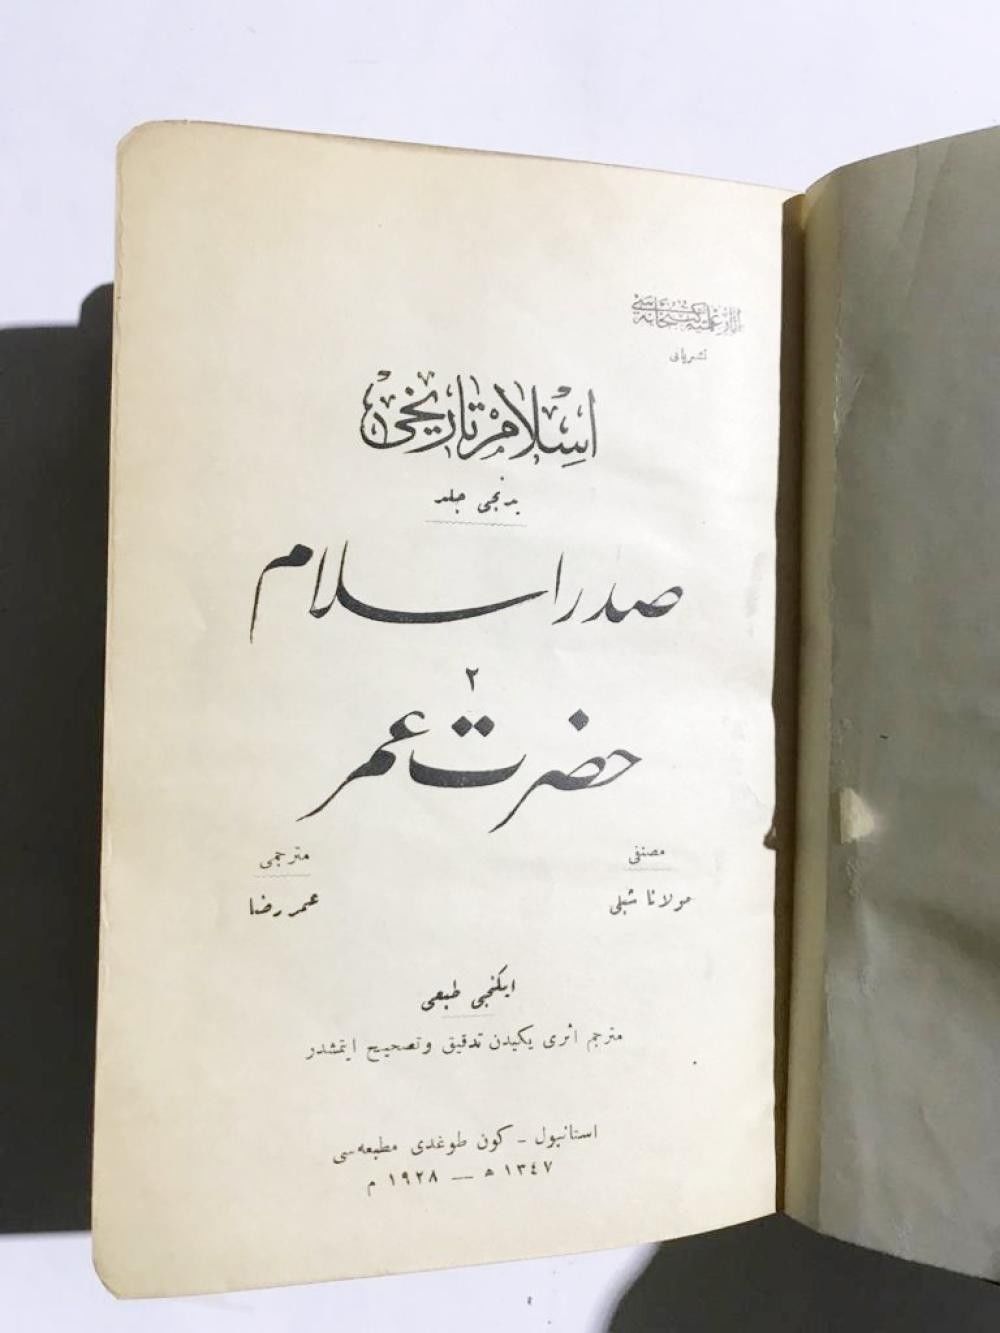 آثار علمیه كتبخانه‌سی
نشریاتی
اسلام تاریخی
یدنجی جلد
صدر اسلام
٢
حضرت عمر
مصنفی
مترجمی
مولانا شبلی
عمر رضا
ایكنجی طبعی
مترجم اثری یكیدن تدقیق وتصحیح ایتمشدر
استانبول - كون طوغدی مطبعه‌سی
١٣٤٧ ﻫ — ١٩٢٨ م